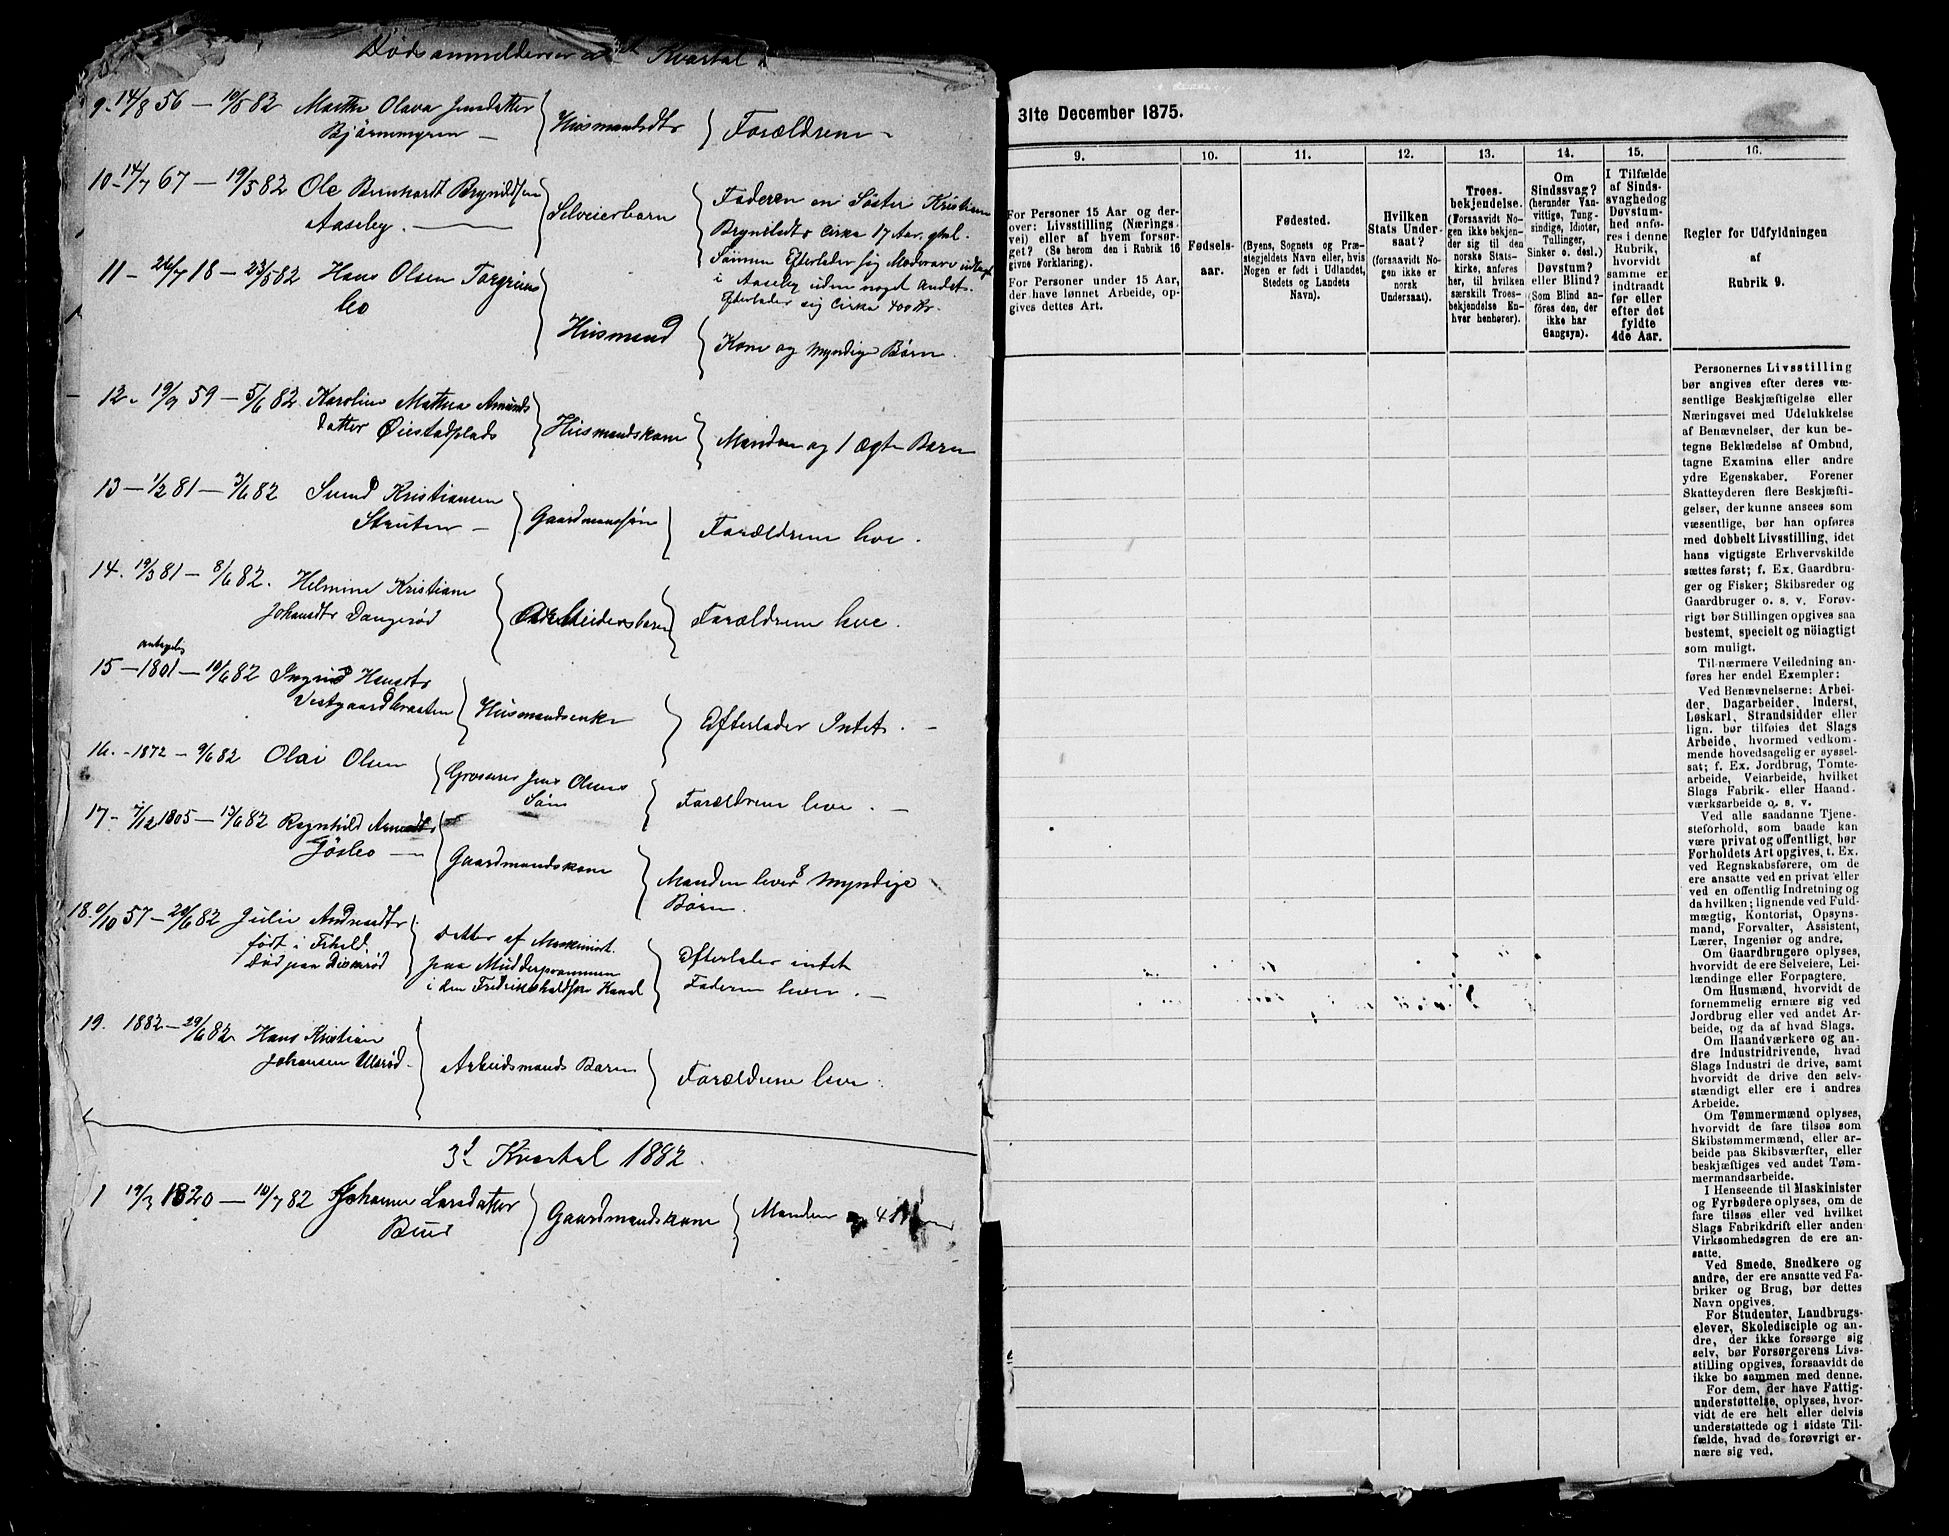 Dødsanmeldelser 2det Kvartal
9. 14/8 56 — 10/5 82 Marthe Olava Jensdatter
Bjørnemyren — Husmandsdtr Forældrene —
10. 14/7 67 — 19/5 82 Ole Bernhardt Brynildsen
Aaseby. — Selveierbarn
Faderen en Søster Kristiane
Brynildsdtr Cirka 17 Aar. gml.
Sønnen Efterlader sig Mødrearv indtagt
i Aaseby uden noget andet.
Efterlader sig Cirka 400 Kr.
11 — 26/7 18 — 23/5 82 Hans Olsen Torgrims
leo Husmand Kone og Myndige Børn.
12. 19/9 59 — 5/6 82. Karoline Mathea Amunds
datter Øiestadplads Husmandskone Manden og 1 Ægte Barn
13 — 1/2 81 — 3/6 82 Svend Kristiansen
Struten — Gaardmandssøn Forældrene leve.
14. 19/3 81 — 8/6 82. Helmine Kristiane
Johansdtr Dangerød Arbeidersbarn Forældrene leve.
15 — 1801 — 10/6 82 Ingrid Hansdtr
Vestgaardbraaten Husmandsenke Efterlader Intet. —
16. — 1872 — 9/6 82 Olai Olsen Grosserer Jens Olsens
Søn Forældrene leve. —
17 — 7/12 1805 — 13/6 82 Ragnhild Amundtr
Jøsleo — Gaardmandskone Manden lever 8 Myndige
Børn.
18. 9/10 57 — 20/6 82 Julie Andreasdtr
født i Frhald.
Død paa Diserød
Datter af Maskinist
paa Mudderprammen
i den Fredrikshaldske Kanal
Efterlader intet
Faderen lever. —
19. 1882 — 29/6 82. Hans Kristian
Johansen Ullerød. Arbeidsmands Barn Forældrene leve.
3d Kvartal 1882.
1 19/3 1820 — 10/7 82 Johanne Larsdatter
Buer Gaardmandskone Manden og 4 Børn
31te December 1875.
9. 10. 11. 12. 13. 14. 15. 16.
For Personer 15 Aar og der-
over: Livsstilling (Nærings-
vei) eller af hvem forsør-
get? (Se herom den i Rubrik 16
givne Forklaring).
For Personer under 15 Aar,
der have lønnet Arbeide, op-
gives dettes Art.
Fødsels-
aar.
Fødested.
(Byens, Sognets og Præ-
stegjeldets Navn eller, hvis
Nogen er født i Udlandet,
Stedets og Landets
Navn).
Hvilken
Stats Under-
saat?
(forsaavidt No-
gen ikke er
norsk
Undersaat).
Troes-
bekjendelse.
(Forsaavidt No-
gen ikke bekjen-
der sig til den
norske Stats-
kirke, anføres
her, til hvilken
særskilt Troes-
bekjendelse En-
hver henhører).
Om
Sindssvag?
(herunder Van-
vittige, Tung-
sindige, Idioter,
Tullinger,
Sinker o. desl.)
Døvstum?
eller Blind?
(Som Blind an-
føres den, der
ikke har
Gangsyn).
I Tilfælde
af Sinds-
svaghedog
Døvstum-
hed anfø-
res i denne
Rubrik,
hvorvidt
samme er
indtraadt
før eller
efter det
fyldte
4de Aar.
Regler for Udfyldningen
af
Rubrik 9.
Personernes Livsstilling
bør angives efter deres væ-
sentlige Beskjæftigelse eller
Næringsvei med Udelukkelse
af Benævnelser, der kun be-
tegne Beklædelse af Ombud,
tagne Examina eller andre
ydre Egenskaber. Forener
Skatteyderen flere Beskjæfti-
gelser, der kunne ansees som
væsentlige, bør han opføres
med dobbelt Livsstilling, idet
hans vigtigste Erhvervskilde
sættes først; f. Ex. Gaardbru-
ger og Fisker; Skibsreder og
Gaardbruger o. s. v. Forøv-
rigt bør Stillingen opgives saa
bestemt, specielt og nöiagtigt
som muligt.
Til nærmere Veiledning an-
føres her endel Exempler:
Ved Benævnelserne: Arbei-
der, Dagarbeider, Inderst,
Løskarl, Strandsidder eller
lign. bør tilføies det Slags
Arbeide, hvormed vedkom-
mende hovedsagelig er syssel-
sat; f. Ex. Jordbrug, Tomte-
arbeide, Veiarbeide, hvilket
Slags Fabrik- eller Haand-
værksarbeide o. s. v.
Ved alle saadanne Tjene-
steforhold, som baade kan
være privat og offentligt, bør
Forholdets Art opgives, t. Ex.
ved Regnskabsførere, om de
ere ansatte ved en privat eller
ved en offentlig Indretning og
da hvilken; lignende ved Fuld-
mægtig, Kontorist, Opsyns-
mand, Forvalter, Assistent,
Lærer, Ingeniør og andre.
Om Gaardbrugere oplyses,
hvorvidt de ere Selveiere, Lei-
lændinge eller Forpagtere.
Om Husmænd, hvorvidt de
fornemmelig ernære sig ved
Jordbrug eller ved andet Ar-
beide, og da af hvad Slags.
Om Haandværkere og an-
dre Industridrivende, hvad
Slags Industri de drive, samt
hvorvidt de drive den selv-
stændigt eller ere i andres
Arbeide.
Om Tømmermænd oplyses,
hvorvidt de fare tilsøs som
Skibstømmermænd, eller ar-
beide paa Skibsværfter, eller
beskjæftiges ved andet Tøm-
mermandsarbeide.
I Henseende til Maskinister
og Fyrbødere oplyses, om de
fare tilsøs eller ved hvilket
Slags Fabrikdrift eller anden
Virksomhedsgren de ere an-
satte.
Ved Smede, Snedkere og
andre, der ere ansatte ved Fa-
briker og Brug, bør dettes
Navn opgives.
For Studenter, Landbrugs-
elever, Skoledisciple og an-
dre, der ikke forsørge sig
selv, bør Forsørgerens Livs-
stilling opgives, forsaavidt de
ikke bo sammen med denne.
For dem, der have Fattig-
understøttelse, oplyses, hvor-
vidt de ere helt eller delvis
understøttede og i sidste Til-
fælde, hvad de forøvrigt er-
nære sig ved.